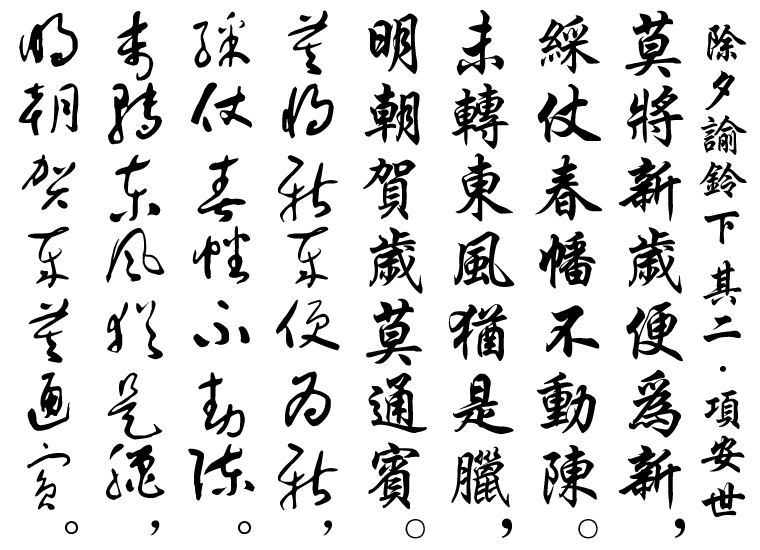 除夕諭鈴下 其二·項安世
莫將新歲便爲新，
綵仗春幡不動陳。
未轉東風猶是臘，
明朝賀歲莫通賓。
莫將新歲便為新，
綵仗春幡不動陳。
未轉東風猶是臘，
明朝賀歲莫通賓。